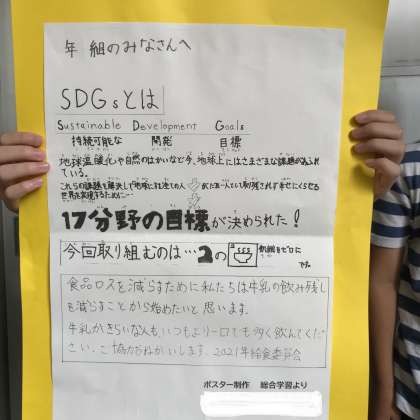 年 組のみなさんへ
SDGsとは
Sustainable Development Goals
持続可能な 開発 目標
地球温暖化や自然のはかいなど今、地球上にはさまざまな課題があふれ
ている。
これらの課題を解決して地球に住む
世界を実現するために…
17分野の目標が決められた！
今回取り組むのは…2の 飢餓をゼロに
です。
食品ロスを減らすために私たちは牛乳の飲み残し
を減らすことから始めたいと思います。
牛乳がきらいな人も、いつもより一口でも多く飲んでくだ
さい。ご協力おねがいします。2021年給食委員会
ポスター制作 総合学習より